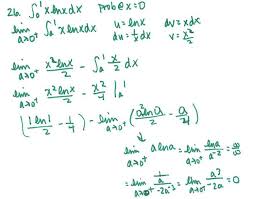 26. ∫₀¹ x ln x dx   prob @ x=0
lim a→0⁺ ∫ₐ¹ x ln x dx   u = ln x   dv = x dx
du = 1/x dx   v = x²/2
lim a→0⁺ x² ln x / 2 − ∫ₐ¹ x/2 dx
lim a→0⁺ x² ln x / 2 − x²/4 |ₐ¹
(1 ln 1 / 2 − 1/4) − lim a→0⁺ (a² ln a / 2 − a/4)
↓
lim a→0⁺ a ln a = lim a→0⁺ ln a / a⁻² = ∞/∞
= lim a→0⁺ (1/a) / −2a⁻³ = lim a→0⁺ a² / −2a = 0